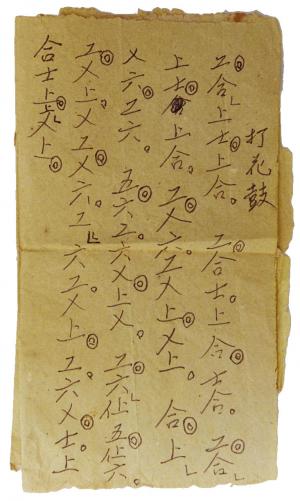 打花鼓
工合上士上合。工合士。上合士合。工合
上士上合。工乂六工乂上乂上。合上
乂六工六。五六工六乂上乂。工六仩五仩六。
工乂上乂工乂六。工六工乂上。工六乂士上
合士上乂上。